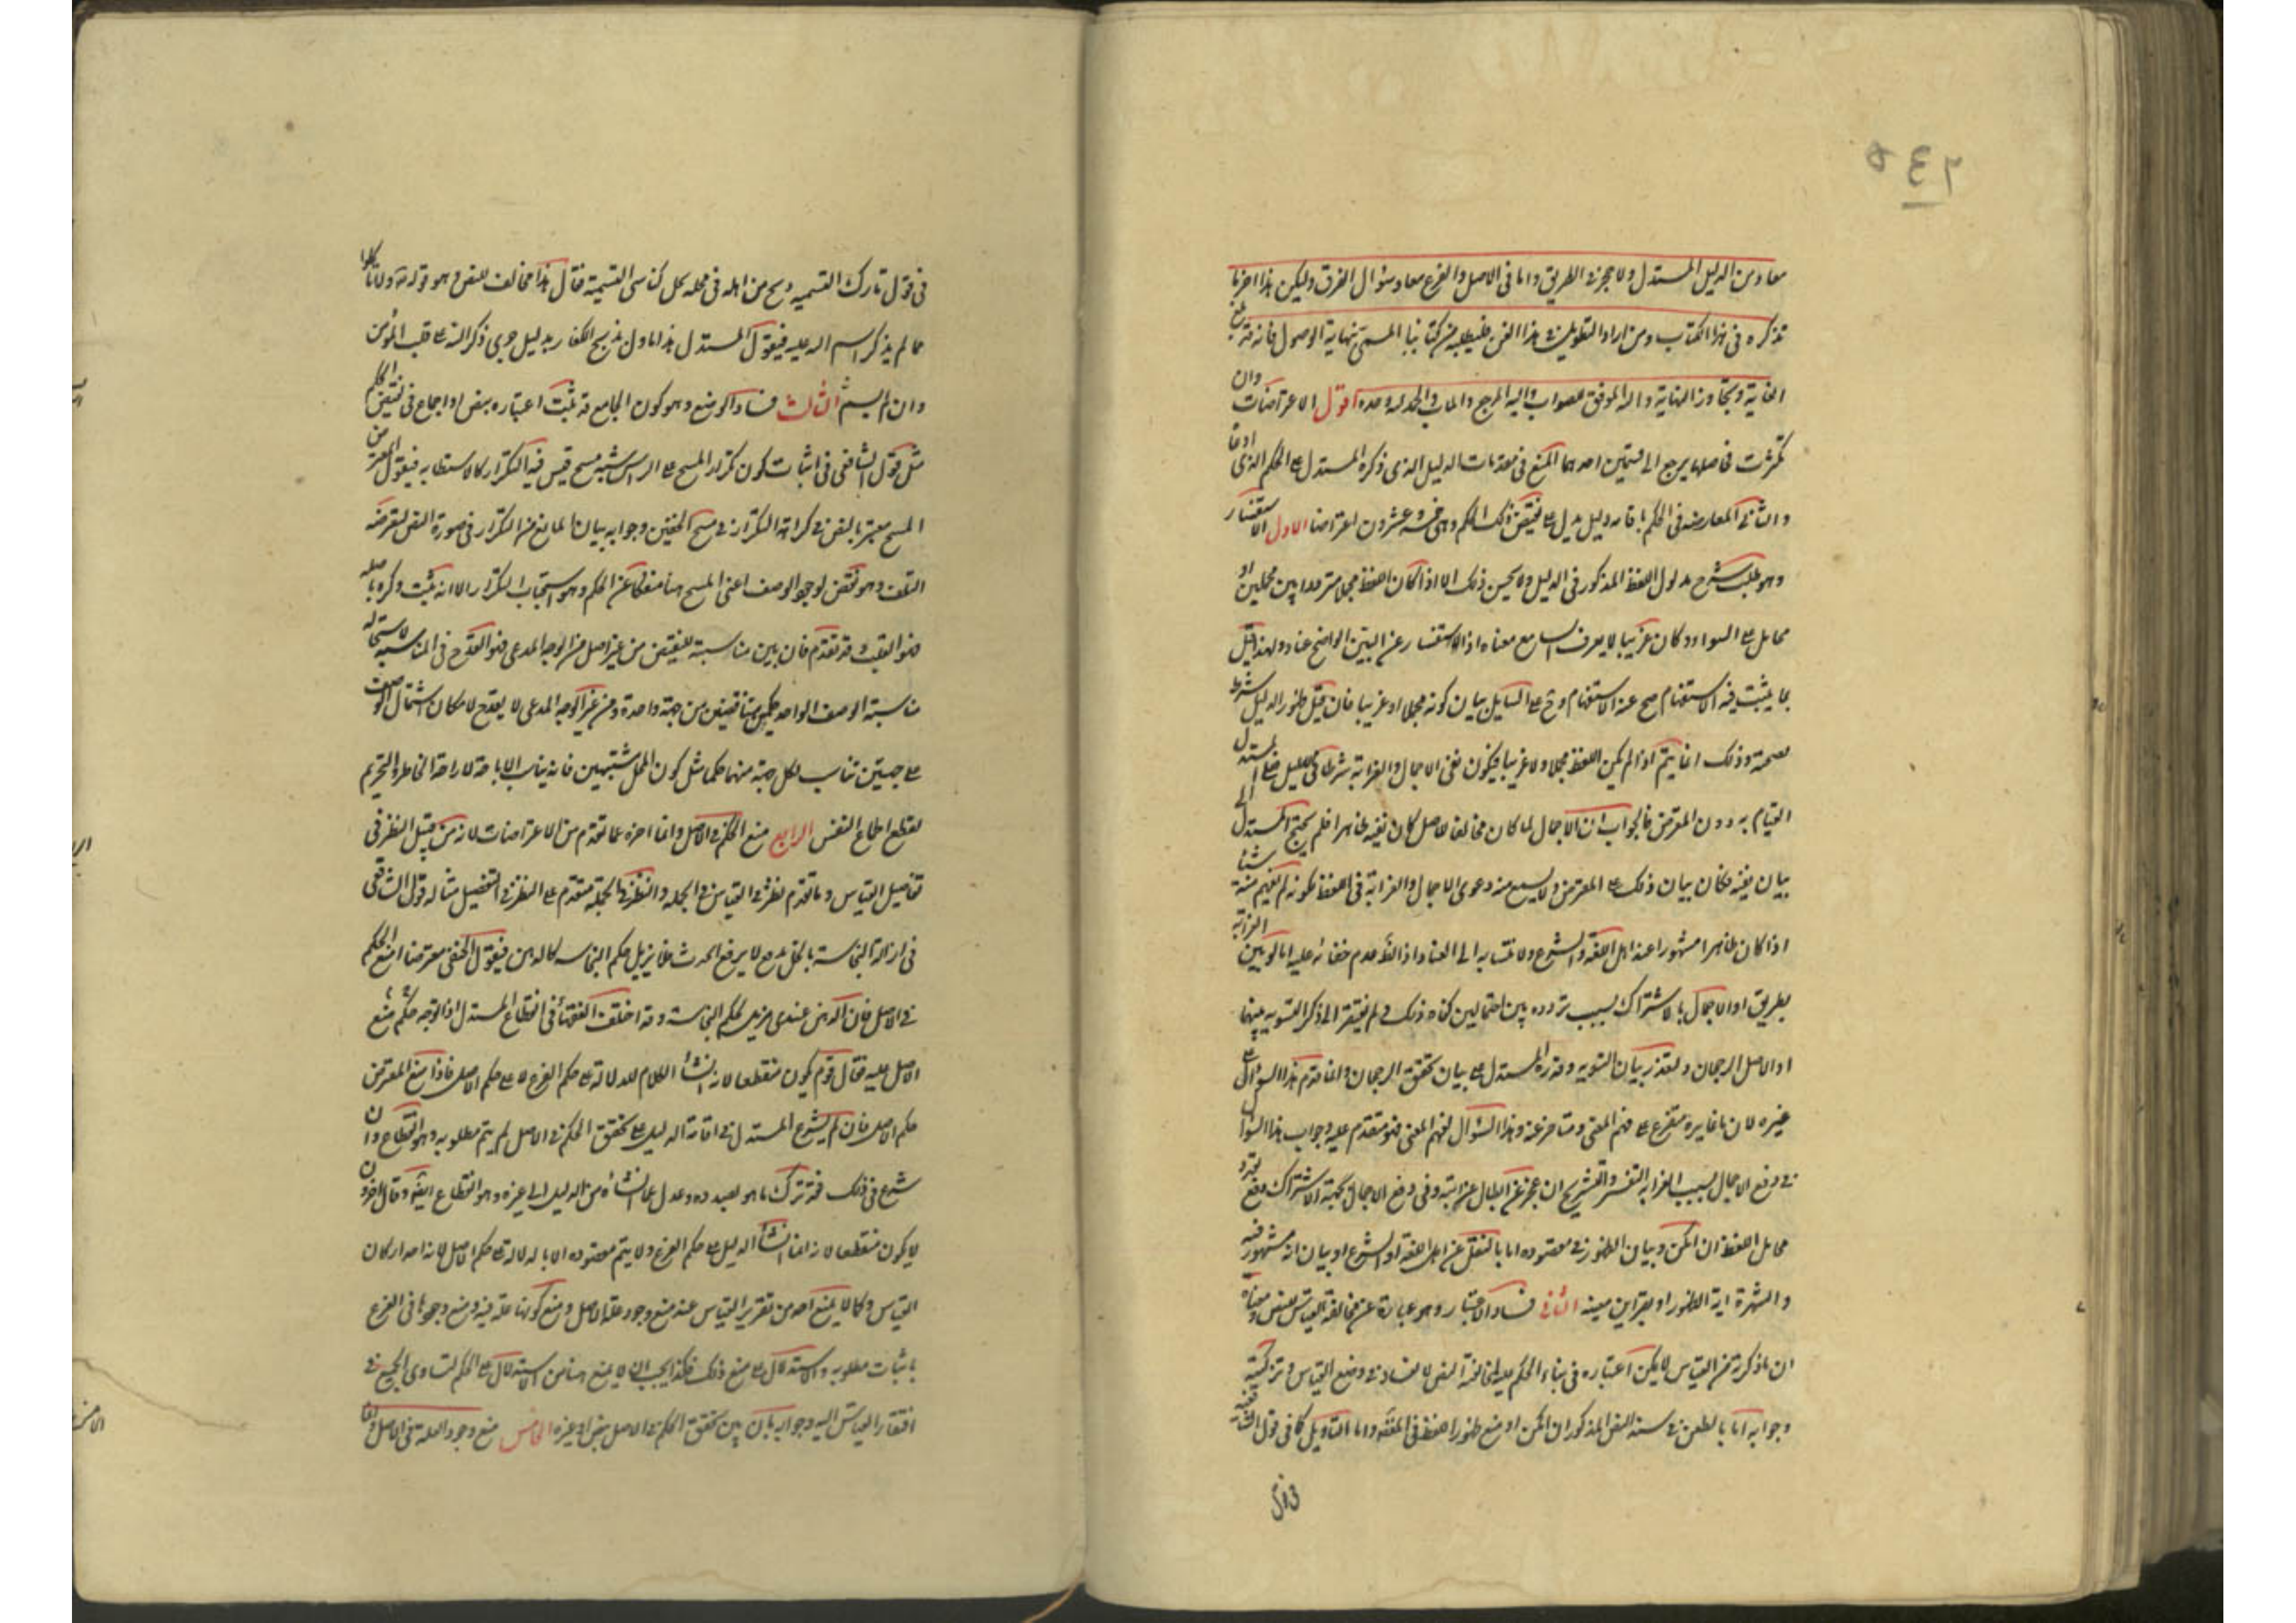 ٢٤٥
معاد من الدليل المستدل ولا حجر في الطريق واما في الاصل والفرع معا وسؤال الفرق وليكن هذا اخر ما
نذكره في هذا الكتاب ومن اراد التطويل في هذا الفن فليطلبه من كتابنا المسمى بنهاية الوصول فانه قد بلغ
الغاية وتجاوز النهاية والله الموفق للصواب واليه المرجع والمآب والحمد لله وحده اقول الاعتراضات وان
كثرت فاصلها يرجع الى قسمين احدهما المنع في مقدمات الدليل الذي ذكره المستدل على الحكم الذي ادعاه
والثاني المعارضة في الحكم باقامة دليل يدل على نقيض ذلك الحكم وهي خمسة وعشرون اعتراضا الاول الاستفسار
وهو طلب شرح مدلول اللفظ المذكور في الدليل ولا يحسن ذلك الا اذا كان اللفظ مجملا مترددا بين محملين او
محامل على السواء او كان غريبا لا يعرف السامع معناه اذ الاستفسار عن البين الواضح عناد ولهذا قيل
ما يثبت فيه الاستفهام صح عنه الاستفهام وح على السايل بيان كونه مجملا او غريبا فان قيل ظهور الدليل شرط
لصحته وذلك انما يتم اذا لم يكن اللفظ مجملا ولا غريبا فيكون نفى الاجمال والغرابة شرطا في الدليل فعلى المستدل
القيام به دون المعترض فالجواب ان الاجمال لما كان مخالفا للاصل كان نفيه ظاهرا فلم يحتج المستدل الى
بيان نفيه فكان بيان ذلك على المعترض ولا يسمع منه دعوى الاجمال والغرابة في اللفظ لكونه لم يفهم منه شيئا
اذا كان ظاهرا مشهورا عند اهل اللغة والشرع ولا نتسابه الى العناد اذ الظ عدم خفائه عليه اما لو بين الغرابة
بطريق او الاجمال بالاشتراك بسبب تردده بين احتمالين كفاه ذلك ولم يفتقر الى ذكر التسوية بينهما
اذ الاصل الرجحان ولتعذر بيان التسوية وقدرة المستدل على بيان تحقق الرجحان وانما قدم هذا السؤال على
غيره لان ما غايره متفرع على فهم المعنى ومتاخر عنه وهذا السؤال لفهم المعنى فهو متقدم عليه وجواب هذا السؤال
في دفع الاجمال بسبب الغرابة التفسير والتشريح ان عجز عن ابطال غرابته وفي دفع الاجمال بجهة الاشتراك دفع تعدد
محامل اللفظ ان امكن وبيان الظهور في مقصوده اما بالنقل عن اهل اللغة او الشرع او بيان انه مشهور فيه
والشهرة اية الظهور او بقراين معينه الثاني فساد الاعتبار وهو عبارة عن مخالفة القياس للنص ومعناه
ان ما ذكرته من القياس لا يمكن اعتباره في بناء الحكم عليه لمخالفة النص لا لفساد في وضع القياس وتركيبه
وجوابه اما بالطعن في سند النص المذكور ان امكن او منع ظهور اللفظ في المفقه واما التاويل كما في قول الشافعية
في قول تارك التسميه ذبح من اهله في محله يحل كناسى التسمية فقال هذا مخالف للنص وهو قوله تع ولا تاكلوا
مما لم يذكر اسم الله عليه فيقول المستدل هذا ماول بذبح الكفار بدليل جرى ذكر الله على قلب المؤمن
وان لم يسم الثالث فساد الوضع وهو كون الجامع قد ثبت اعتباره بنص او اجماع في نقيض الحكم
مثل قول الشافعي في اثبات كون تكرار المسح على الراس شبه مسح قيس فيه التكرار كالاستطابه فيقول المعترض
المسح معتبر بالنص في كراهة التكرار في مسح الخفين وجوابه ببيان المانع من التكرار في صورة النص لتعرضه
التلف وهو نقض لوجود الوصف اعنى المسح هنا منفكا عن الحكم وهو استحباب التكرار الا انه يثبت وذكره باصله
فهو القلب وقد تقدم فان بين مناسبة للنقيض من غير اصل من الوجه المدعى فهو القدح في المناسبة لاستحالة
مناسبة الوصف الواحد حكمين متناقضين من جهة واحدة ومن غير الوجه المدعى لا يقدح لامكان اشتمال الوصف
على جهتين تناسب لكل جهة منهما حكما مثل كون المحل مشتبهين فانه يناسب الاباحة لاراحة الخاطر والتحريم
لقطع اطماع النفس الرابع منع الحكم في الاصل وانما اخره عما تقدم من الاعتراضات لانه من قبيل النظر في
تفاصيل القياس وما تقدم نظر في القياس في الجمله والنظر في الجملة متقدم على النظر في التفصيل مثاله قول الشافعي
في ازالة النجاسة بالخل مايع لا يرفع الحدث فلا يزيل حكم النجاسه كالدهن فيقول الحنفي معترضا امنع الحكم
في الاصل فان الدهن عندى مزيل لحكم النجاسة وقد اختلف الفقهاء في انقطاع المستدل اذا توجه حكم منع
الاصل عليه فقال قوم يكون منقطعا لانه انشأ الكلام للدلالة على حكم الفرع لا على حكم الاصل فاذا منع المعترض
حكم الاصل فان لم يشرع المستدل في اقامة الدليل على تحقق الحكم في الاصل لم يتم مطلوبه وهو انقطاع وان
شرع في ذلك فقد ترك ما هو بصدده وعدل عما انشأه من الدليل الى غيره وهو انقطاع ايضا وقال اخرون
لا يكون منقطعا لانه انما انشأ الدليل على حكم الفرع ولا يتم مقصوده الا بالدلالة على حكم الاصل لانه احد اركان
القياس وكما لا يمنع احد من تقرير القياس عند منع وجود علة الاصل ومنع كونها علة فيه ومنع وجودها في الفرع
باثبات مطلوبه والاستدلال على منع ذلك فكذا يجب ان لا يمنع هنا من الاستدلال على الحكم لتساوى الجميع في
افتقار القياس اليه وجوابه بان يبين تحقق الحكم في الاصل بنص او غيره الخامس منع وجود العلة في الاصل وانما